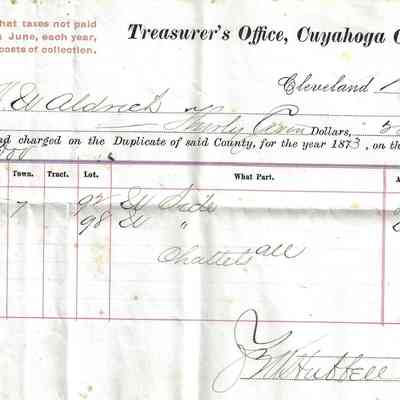 that taxes not paid
June, each year,
costs of collection.
Treasurer's Office, Cuyahoga C
Cleveland
W Aldrich
Thirty Seven Dollars, 3
nd charged on the Duplicate of said County, for the year 1873, on th
Town. Tract. Lot. What Part. A
7 92 W Side
98 W "
Chattels all
Hubbell